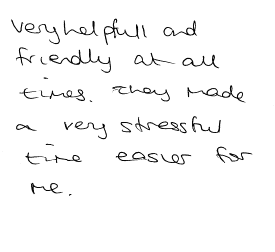 very helpfull and
friendly at all
times. They made
a very stressful
time easier for
me.